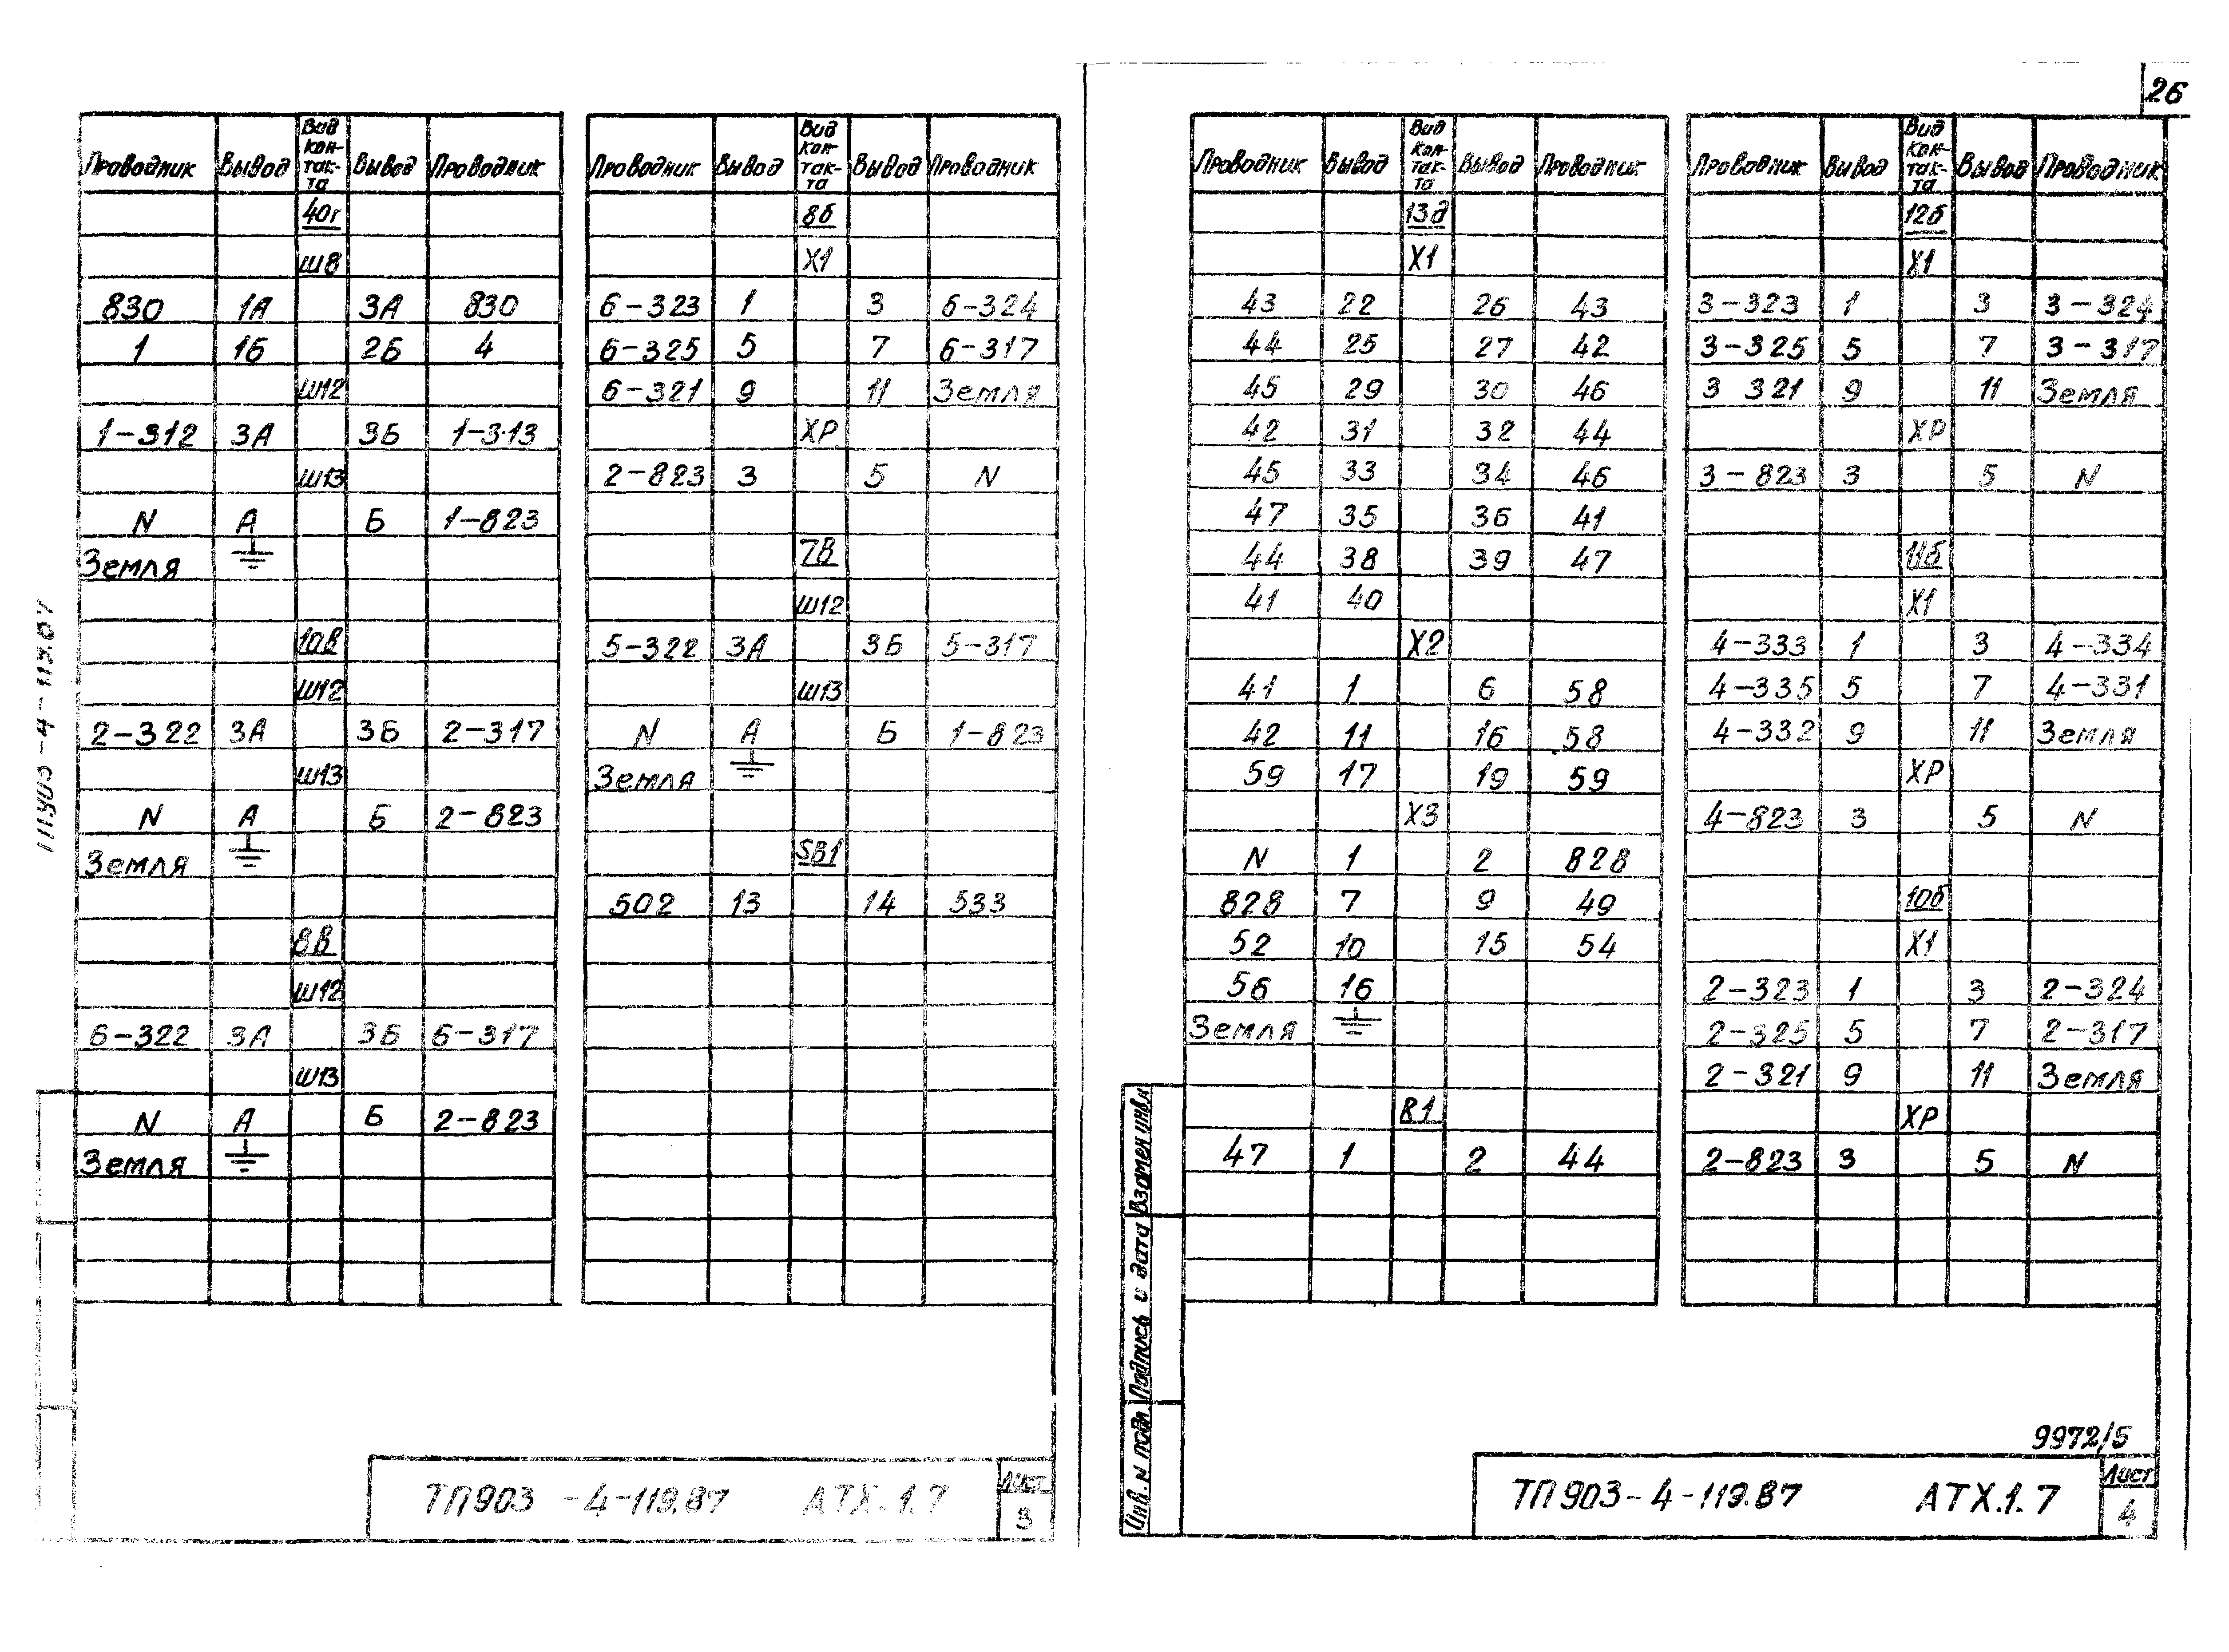 26
Проводник Вывод Вид контакта Вывод Проводник
40г
Ш8
830 1А 3А 830
1 1Б 2Б 4
Ш12
1-312 3А 3Б 1-313
Ш13
N А Б 1-823
Земля ⏚
10В
Ш12
2-322 3А 3Б 2-317
Ш13
N А Б 2-823
Земля ⏚
8В
Ш12
6-322 3А 3Б 6-317
Ш13
N А Б 2-823
Земля ⏚
Проводник Вывод Вид контакта Вывод Проводник
8б
Х1
6-323 1 3 6-324
6-325 5 7 6-317
6-321 9 11 Земля
ХР
2-823 3 5 N
7В
Ш12
5-322 3А 3Б 5-317
Ш13
N А Б 1-823
Земля ⏚
SB1
502 13 14 533
ТП903-4-119.87 АТХ.1.7
Лист
3
Проводник Вывод Вид контакта Вывод Проводник
13д
Х1
43 22 26 43
44 25 27 42
45 29 30 46
42 31 32 44
45 33 34 46
47 35 36 41
44 38 39 47
41 40
Х2
41 1 6 58
42 11 16 58
59 17 19 59
Х3
N 1 2 828
828 7 9 49
52 10 15 54
56 16
Земля ⏚
В1
47 1 2 44
Проводник Вывод Вид контакта Вывод Проводник
12б
Х1
3-323 1 3 3-324
3-325 5 7 3-317
3 321 9 11 Земля
ХР
3-823 3 5 N
11б
Х1
4-333 1 3 4-334
4-335 5 7 4-331
4-332 9 11 Земля
ХР
4-823 3 5 N
10б
Х1
2-323 1 3 2-324
2-325 5 7 2-317
2-321 9 11 Земля
ХР
2-823 3 5 N
Инв. N подл. Подпись и дата Взамен инв.N
9972/5
ТП903-4-119.87 АТХ.1.7
Лист
4